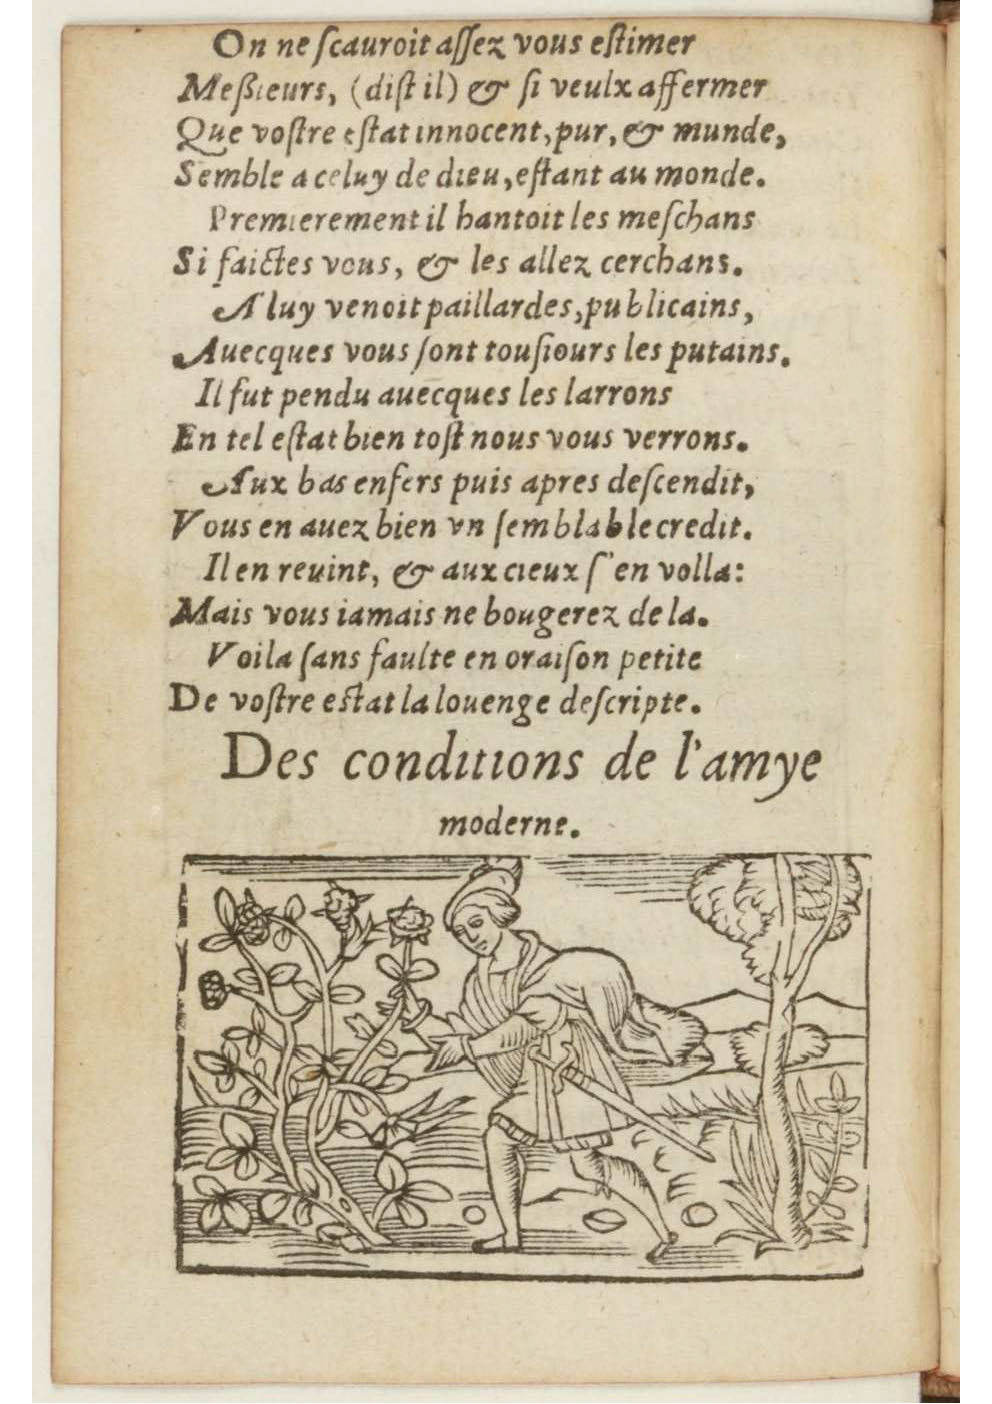 On ne ſcauroit aſſez vous eſtimer
Meßieurs, (diſt il) & ſi veulx affermer
Que voſtre eſtat innocent, pur, & munde,
Semble a celuy de dieu, eſtant au monde.
Premierement il hantoit les meſchans
Si faictes vous, & les allez cerchans.
A luy venoit paillardes, publicains,
Auecques vous ſont touſiours les putains.
Il fut pendu auecques les larrons
En tel eſtat bien toſt nous vous verrons.
Aux bas enfers puis apres deſcendit,
Vous en auez bien vn ſemblable credit.
Il en reuint, & aux cieux ſ'en volla:
Mais vous iamais ne bougerez de la.
Voila ſans faulte en oraiſon petite
De voſtre eſtat la louenge deſcripte.
Des conditions de l'amye
moderne.